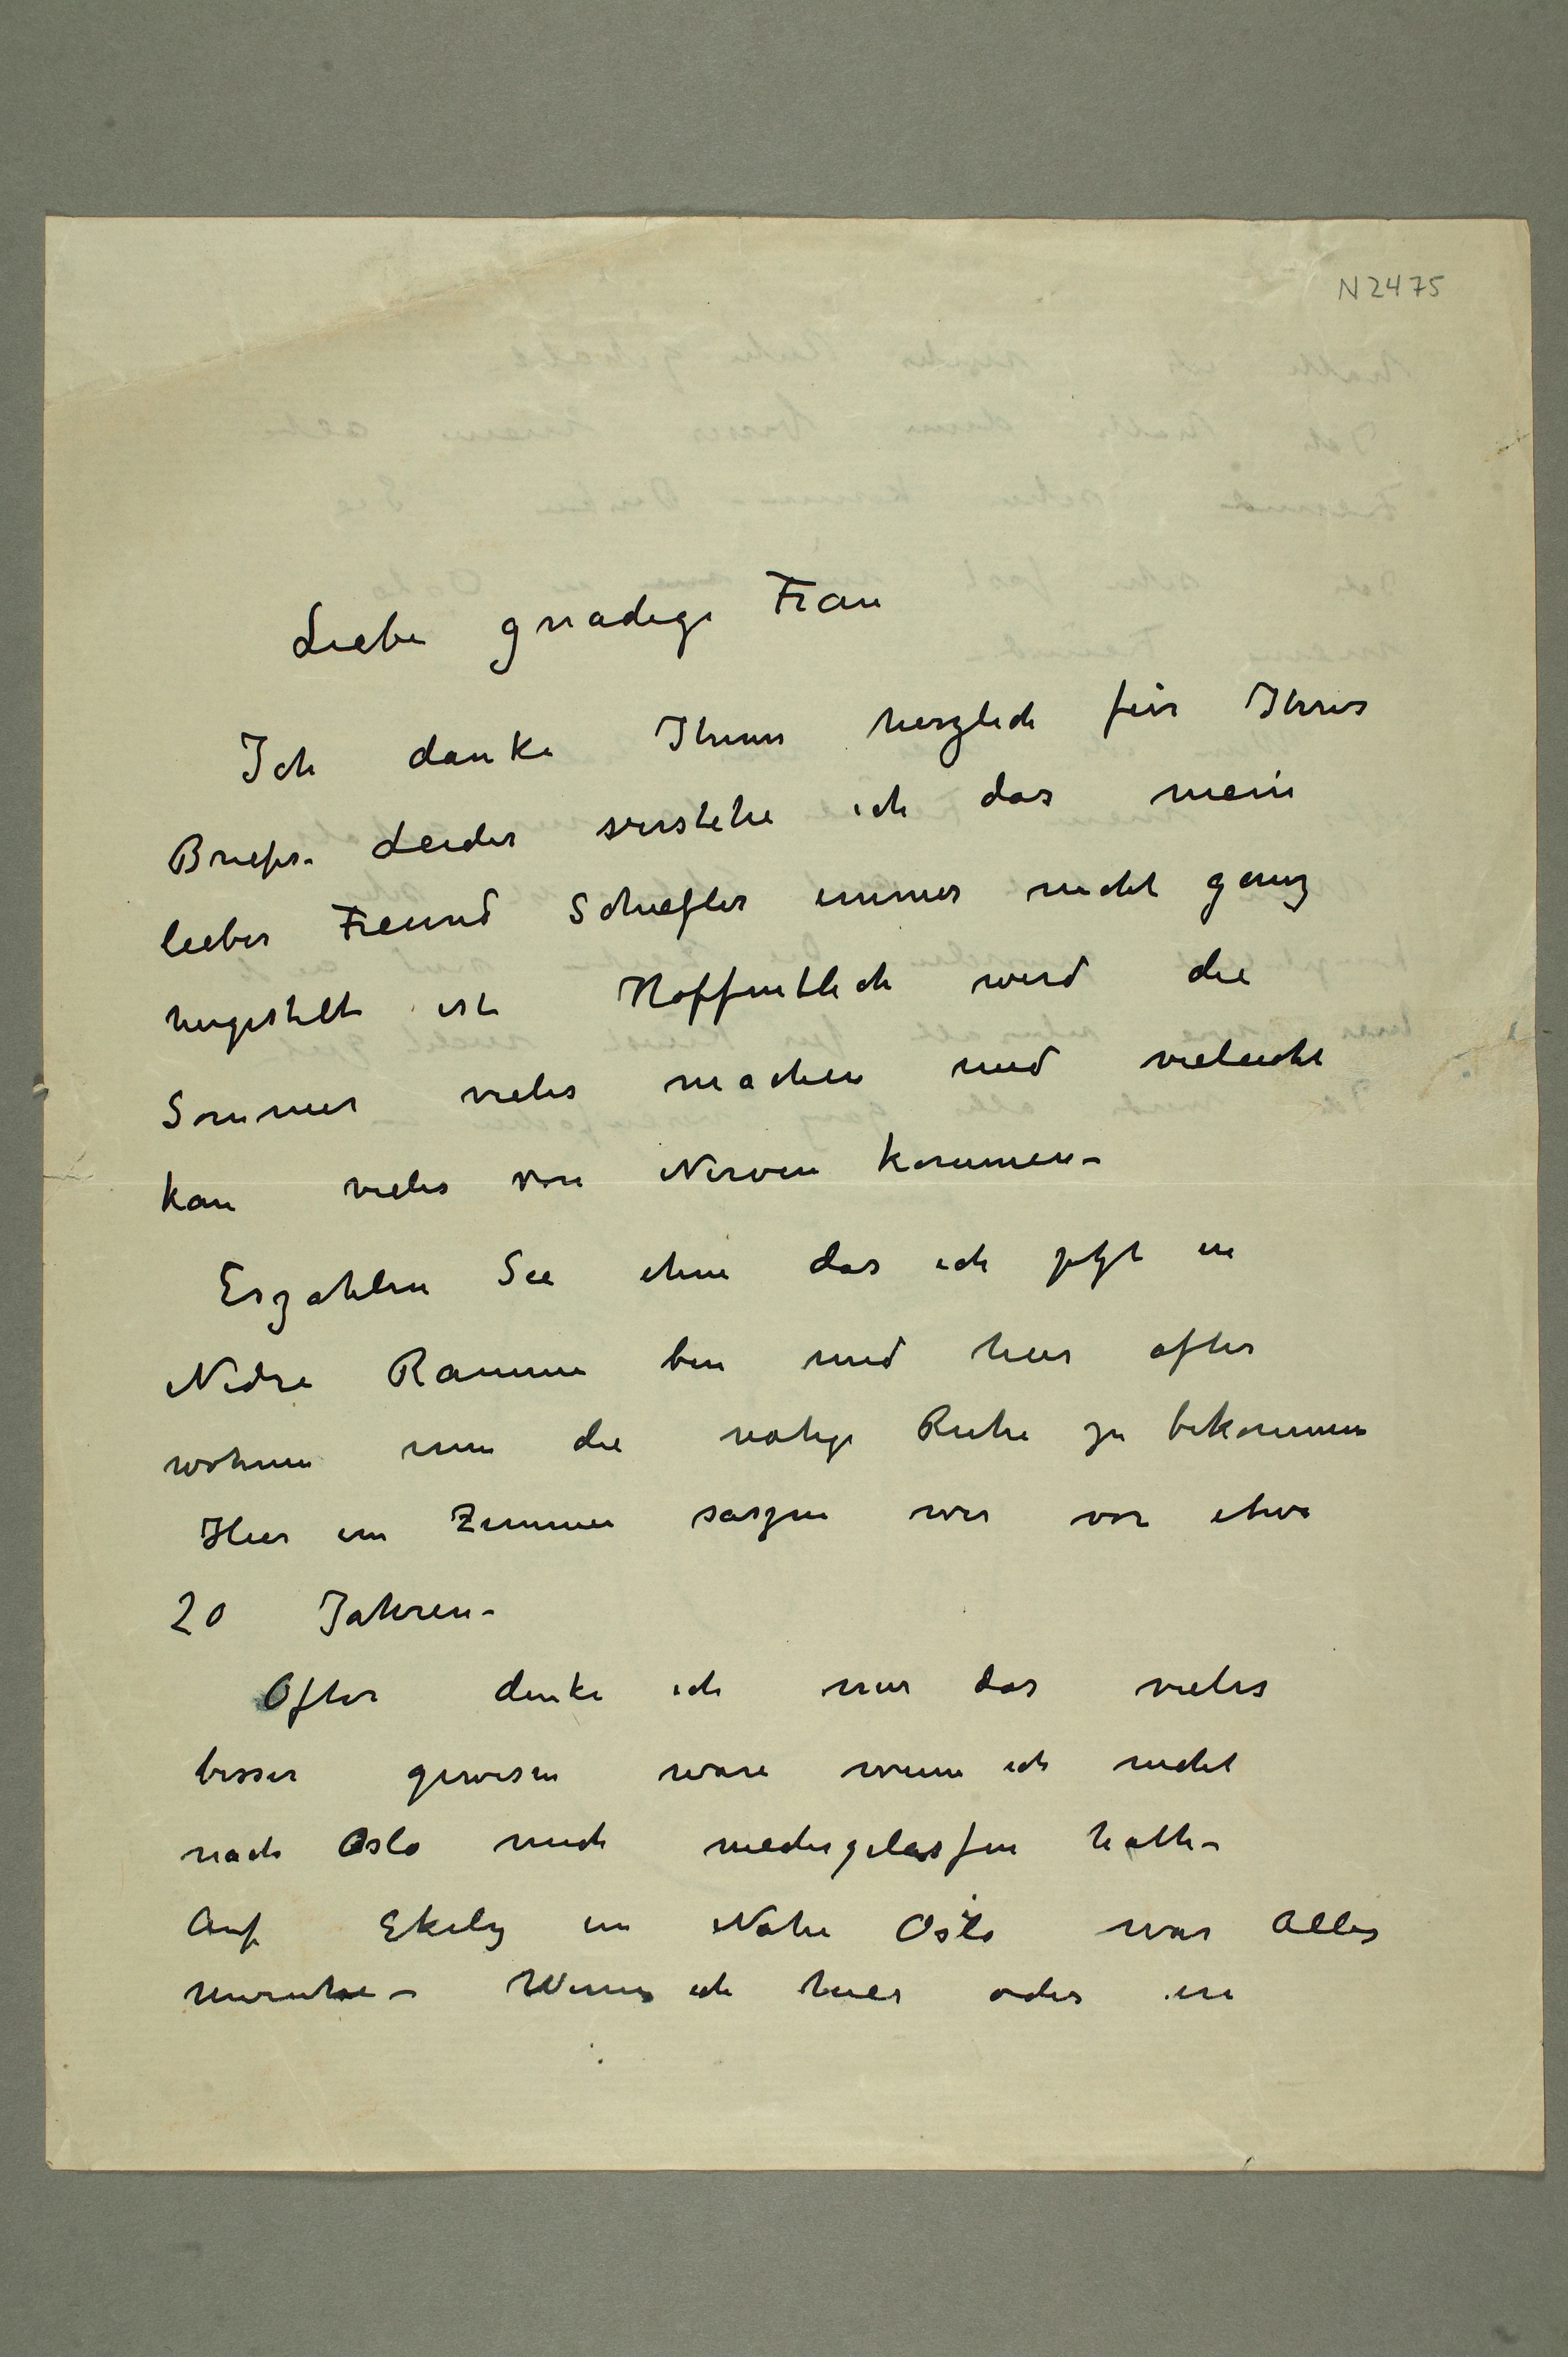 N 2475
Liebe gnadige Frau
Ich danke Ihnen herzlich für Ihres
Briefes. Leider verstehe ich das mein
lieber Freund Schiefler immer nicht ganz
hergestellt ist Hoffentlich wird die
Sommer vieles machen und vieleicht
kan vieles von Nerven kommen–
Erzahlen Sie ihm das ich jetzt in
Nedre Ramme bin und hier ofter
wohne um die notige Ruhe zu bekommen
Hier im Zimmer saszen wir vor etwa
20 Jahren–
Ofter denke ich mir das vieles
besser gewesen ware wenn ich nicht
nach Oslo mich niedergelassen hatte–
Auf Ekely in Nahe Oslo war Alles
Unruhe– Wenn ich hier oder in